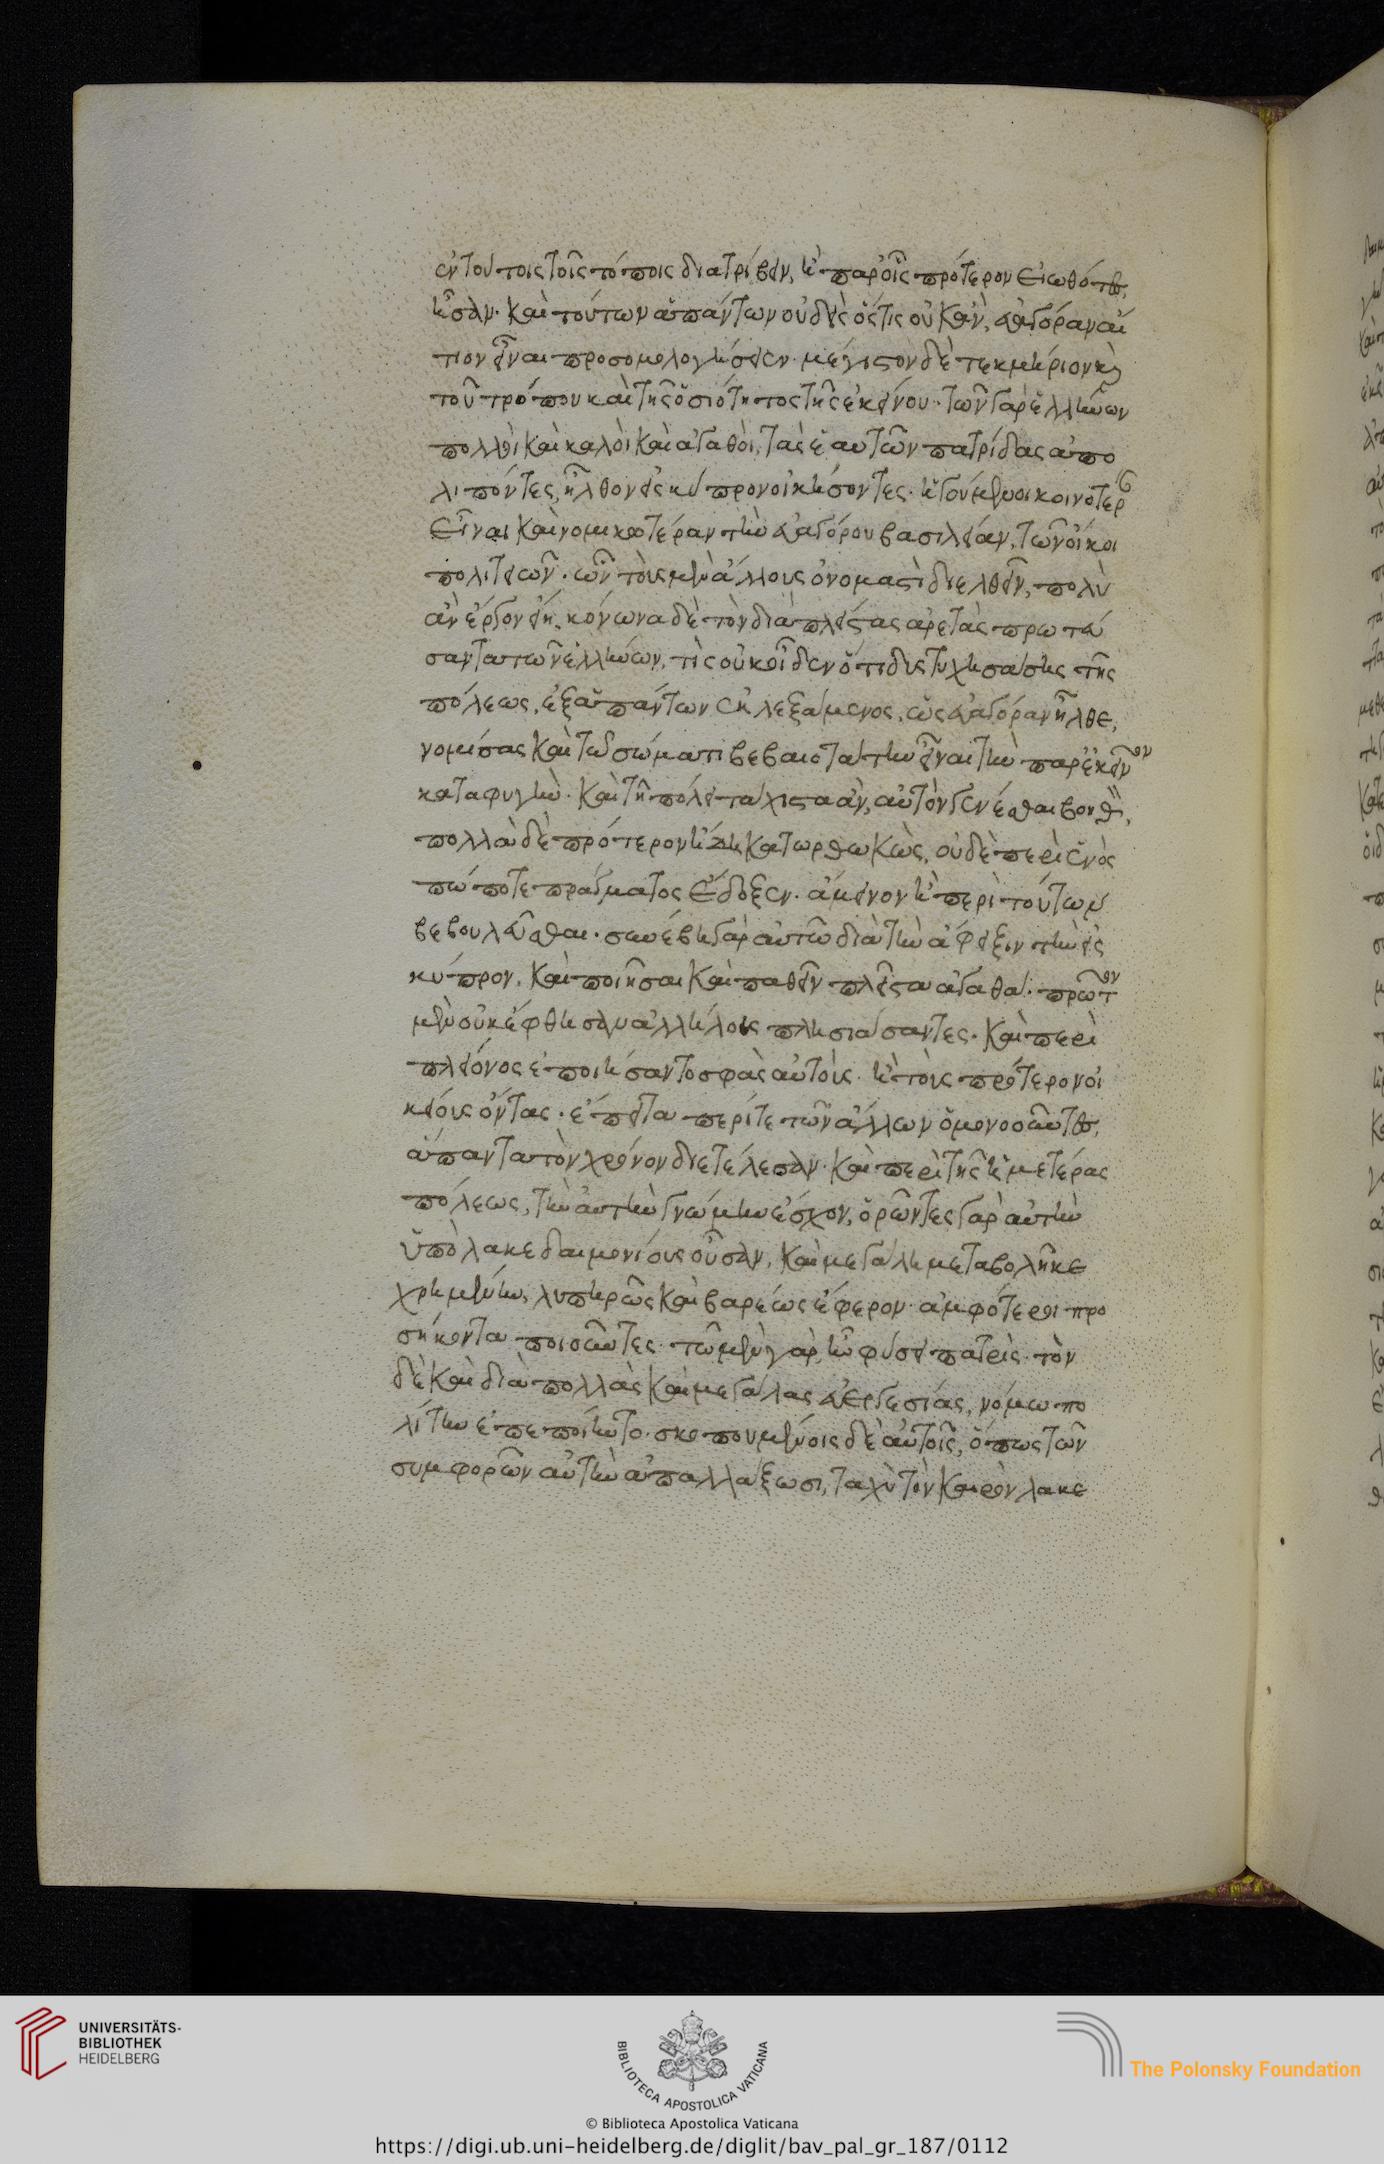 ἐν τούτοις τοῖς τόποις διατρίβειν, ἢ παρ' οἷς πρότερον εἰωθότες
ἦσαν. καὶ τούτων ἁπάντων οὐδεὶς ὅστις οὐκ ἂν, εὐαγόραν αἴ
τιον εἶναι προσομολογήσειεν. μέγιστον δὲ τεκμήριον καὶ
τοῦ τρόπου καὶ τῆς ὁσιότητος τῆς ἐκείνου. τῶν γὰρ ἑλλήνων
πολλοὶ καὶ καλοὶ καὶ ἀγαθοὶ, τὰς ἑαυτῶν πατρίδας ἀπο
λιπόντες, ἦλθον εἰς κύπρον οἰκήσοντες. ἡγούμενοι κοινοτέραν
εἶναι καὶ νομικωτέραν τὴν εὐαγόρου βασιλείαν, τῶν οἴκοι
πολιτειῶν. ὧν τοὺς μὲν ἄλλους ὀνομαστὶ διελθεῖν, πολὺ
ἂν ἔργον εἴη. κόνωνα δὲ τὸν διὰ πλείστας ἀρετὰς πρωτεύ
σαντα τῶν ἑλλήνων, τίς οὐκ οἶδεν ὅτι δυστυχησάσης τῆς
πόλεως, ἐξ ἁπάντων ἐκλεξάμενος, ὡς εὐαγόραν ἦλθε,
νομίσας καὶ τῷ σώματι βεβαιοτάτην εἶναι τὴν παρ' ἐκεῖνον
καταφυγὴν. καὶ τῇ πόλει τάχιστα ἂν, αὐτὸν γενέσθαι βοηθὸν,
πολλὰ δὲ πρότερον ἤδη κατωρθωκὼς, οὐδὲ περὶ ἑνὸς
πώποτε πράγματος ἔδοξεν. ἄμεινον ἢ περὶ τούτων
βεβουλεῦσθαι. συνέβη γὰρ αὐτῷ διὰ τὴν ἄφιξιν τὴν εἰς
κύπρον, καὶ ποιῆσαι καὶ παθεῖν πλεῖστα ἀγαθά. πρῶτον
μὲν οὐκ ἔφθησαν ἀλλήλοις πλησιάσαντες. καὶ περὶ
πλείονος ἐποιήσαντο σφᾶς αὐτοὺς. ἢ τοὺς πρότερον οἰ
κείους ὄντας. ἔπειτα περί τε τῶν ἄλλων ὁμονοοῦντες,
ἅπαντα τὸν χρόνον διετέλεσαν. καὶ περὶ τῆς ἡμετέρας
πόλεως, τὴν αὐτὴν γνώμην ἔσχον, ὁρῶντες γὰρ αὐτὴν
ὑπὸ λακεδαιμονίοις οὖσαν, καὶ μεγάλῃ μεταβολῇ κε
χρημένην, λυπηρῶς καὶ βαρέως ἔφερον. ἀμφότεροι προ
σήκοντα ποιοῦντες. τῷ μὲν γὰρ, ἦν φύσει πατρὶς. τὸν
δὲ καὶ διὰ πολλὰς καὶ μεγάλας εὐεργεσίας, νόμῳ πο
λίτην ἐπεποίηντο. σκοπουμένοις δὲ αὐτοῖς, ὅπως τῶν
συμφορῶν αὐτὴν ἀπαλλάξωσι, ταχὺ τὸν καιρὸν λακε
UNIVERSITÄTS-
BIBLIOTHEK
HEIDELBERG
BIBLIOTECA APOSTOLICA VATICANA
The Polonsky Foundation
© Biblioteca Apostolica Vaticana
https://digi.ub.uni-heidelberg.de/diglit/bav_pal_gr_187/0112